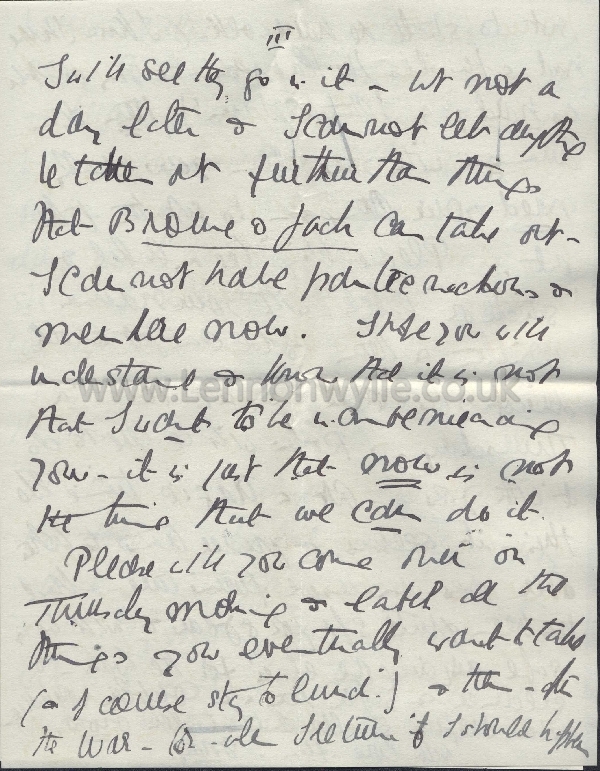 III
I will see they go in it – but not a
day later & I cannot let anything
be taken out further than things
that Browne & Jack can take out –
I cannot have pantechnicons &
men here now. I hope you will
understand & know that it is not
that I want to be inconveniencing
you – it is just that now is not
the time that we can do it.
Please will you come over on
Thursday morning & label all the
things you eventually want to take
(& of course stay to lunch!) & then – after
the War – or when I return if I should happen
www.Lennonwylie.co.uk